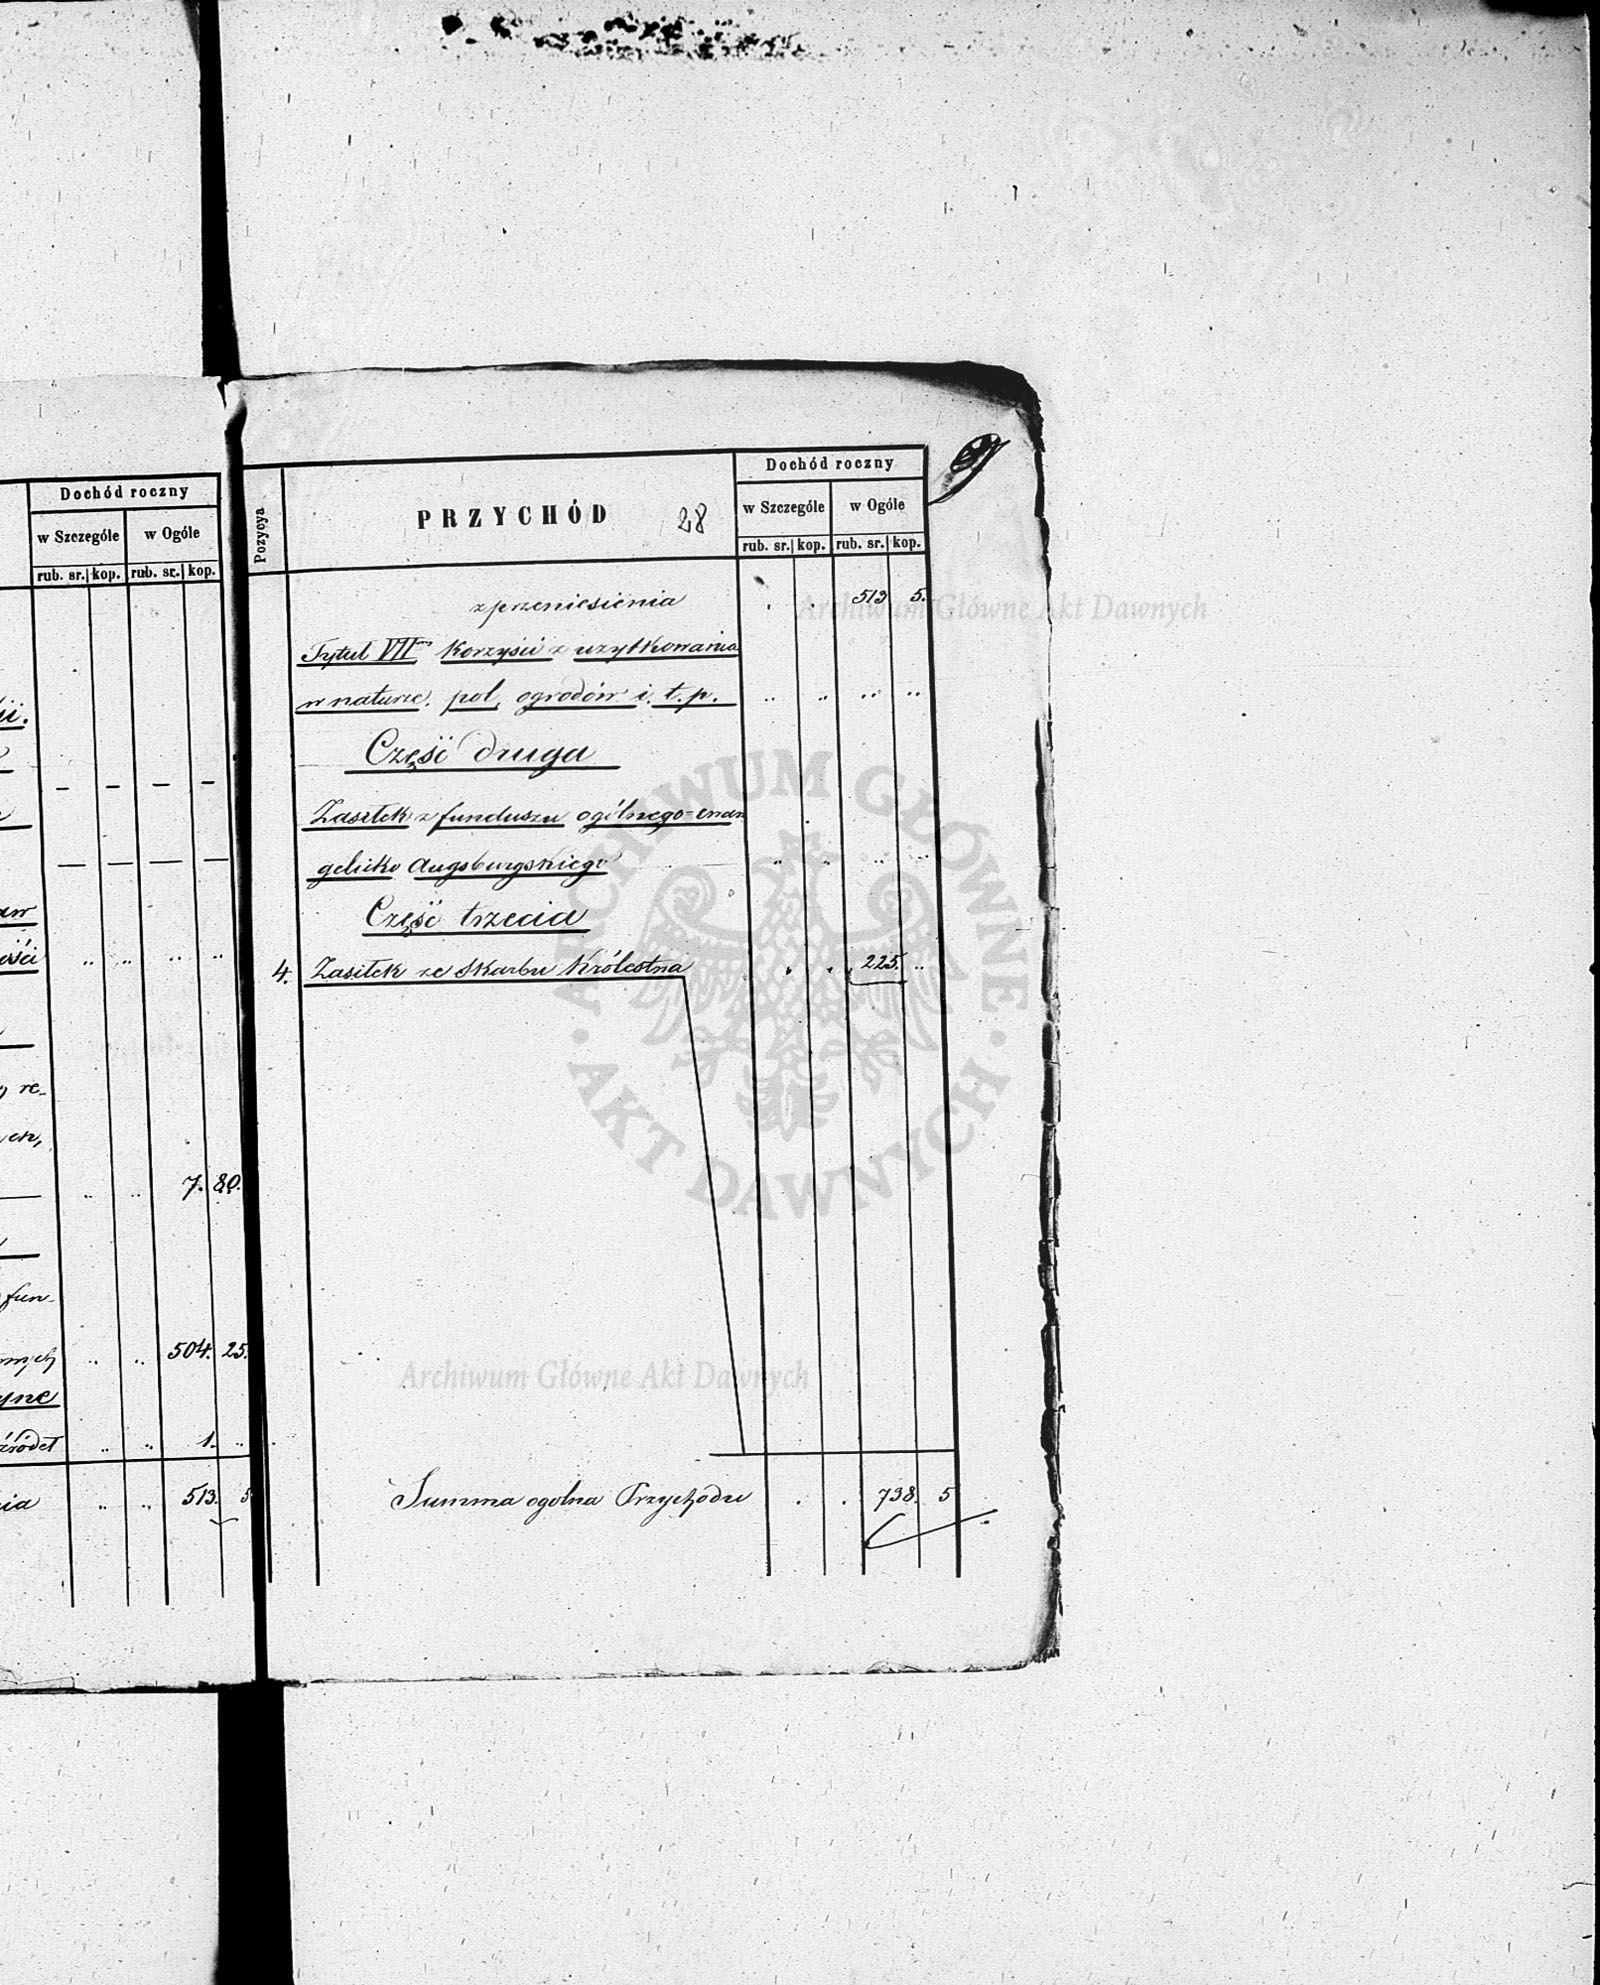 Dochód roczny
w Szczególe w Ogóle
rub. sr. kop. rub. sr. kop.
ii.
aw
ości
y re-
ych,
7. 80.
fun-
nych 504. 25.
yne
źródeł 1.
nia 513. 5
Pozycya PRZYCHÓD 28 Dochód roczny
w Szczególe w Ogóle
rub. sr. kop. rub. sr. kop.
z przeniesienia 513 5.
Tytuł VII Korzyści z użytkowania
w naturze, pol, ogrodów i. t. p.
Część druga
Zasiłek z funduszu ogólnego-ewan
gelicko Augsburgskiego
Część trzecia
4. Zasiłek ze Skarbu Królestwa 225.
Summa ogolna Przychodu 738. 5
Archiwum Główne Akt Dawnych
ARCHIWUM GŁÓWNE
AKT DAWNYCH
Archiwum Główne Akt Dawnych